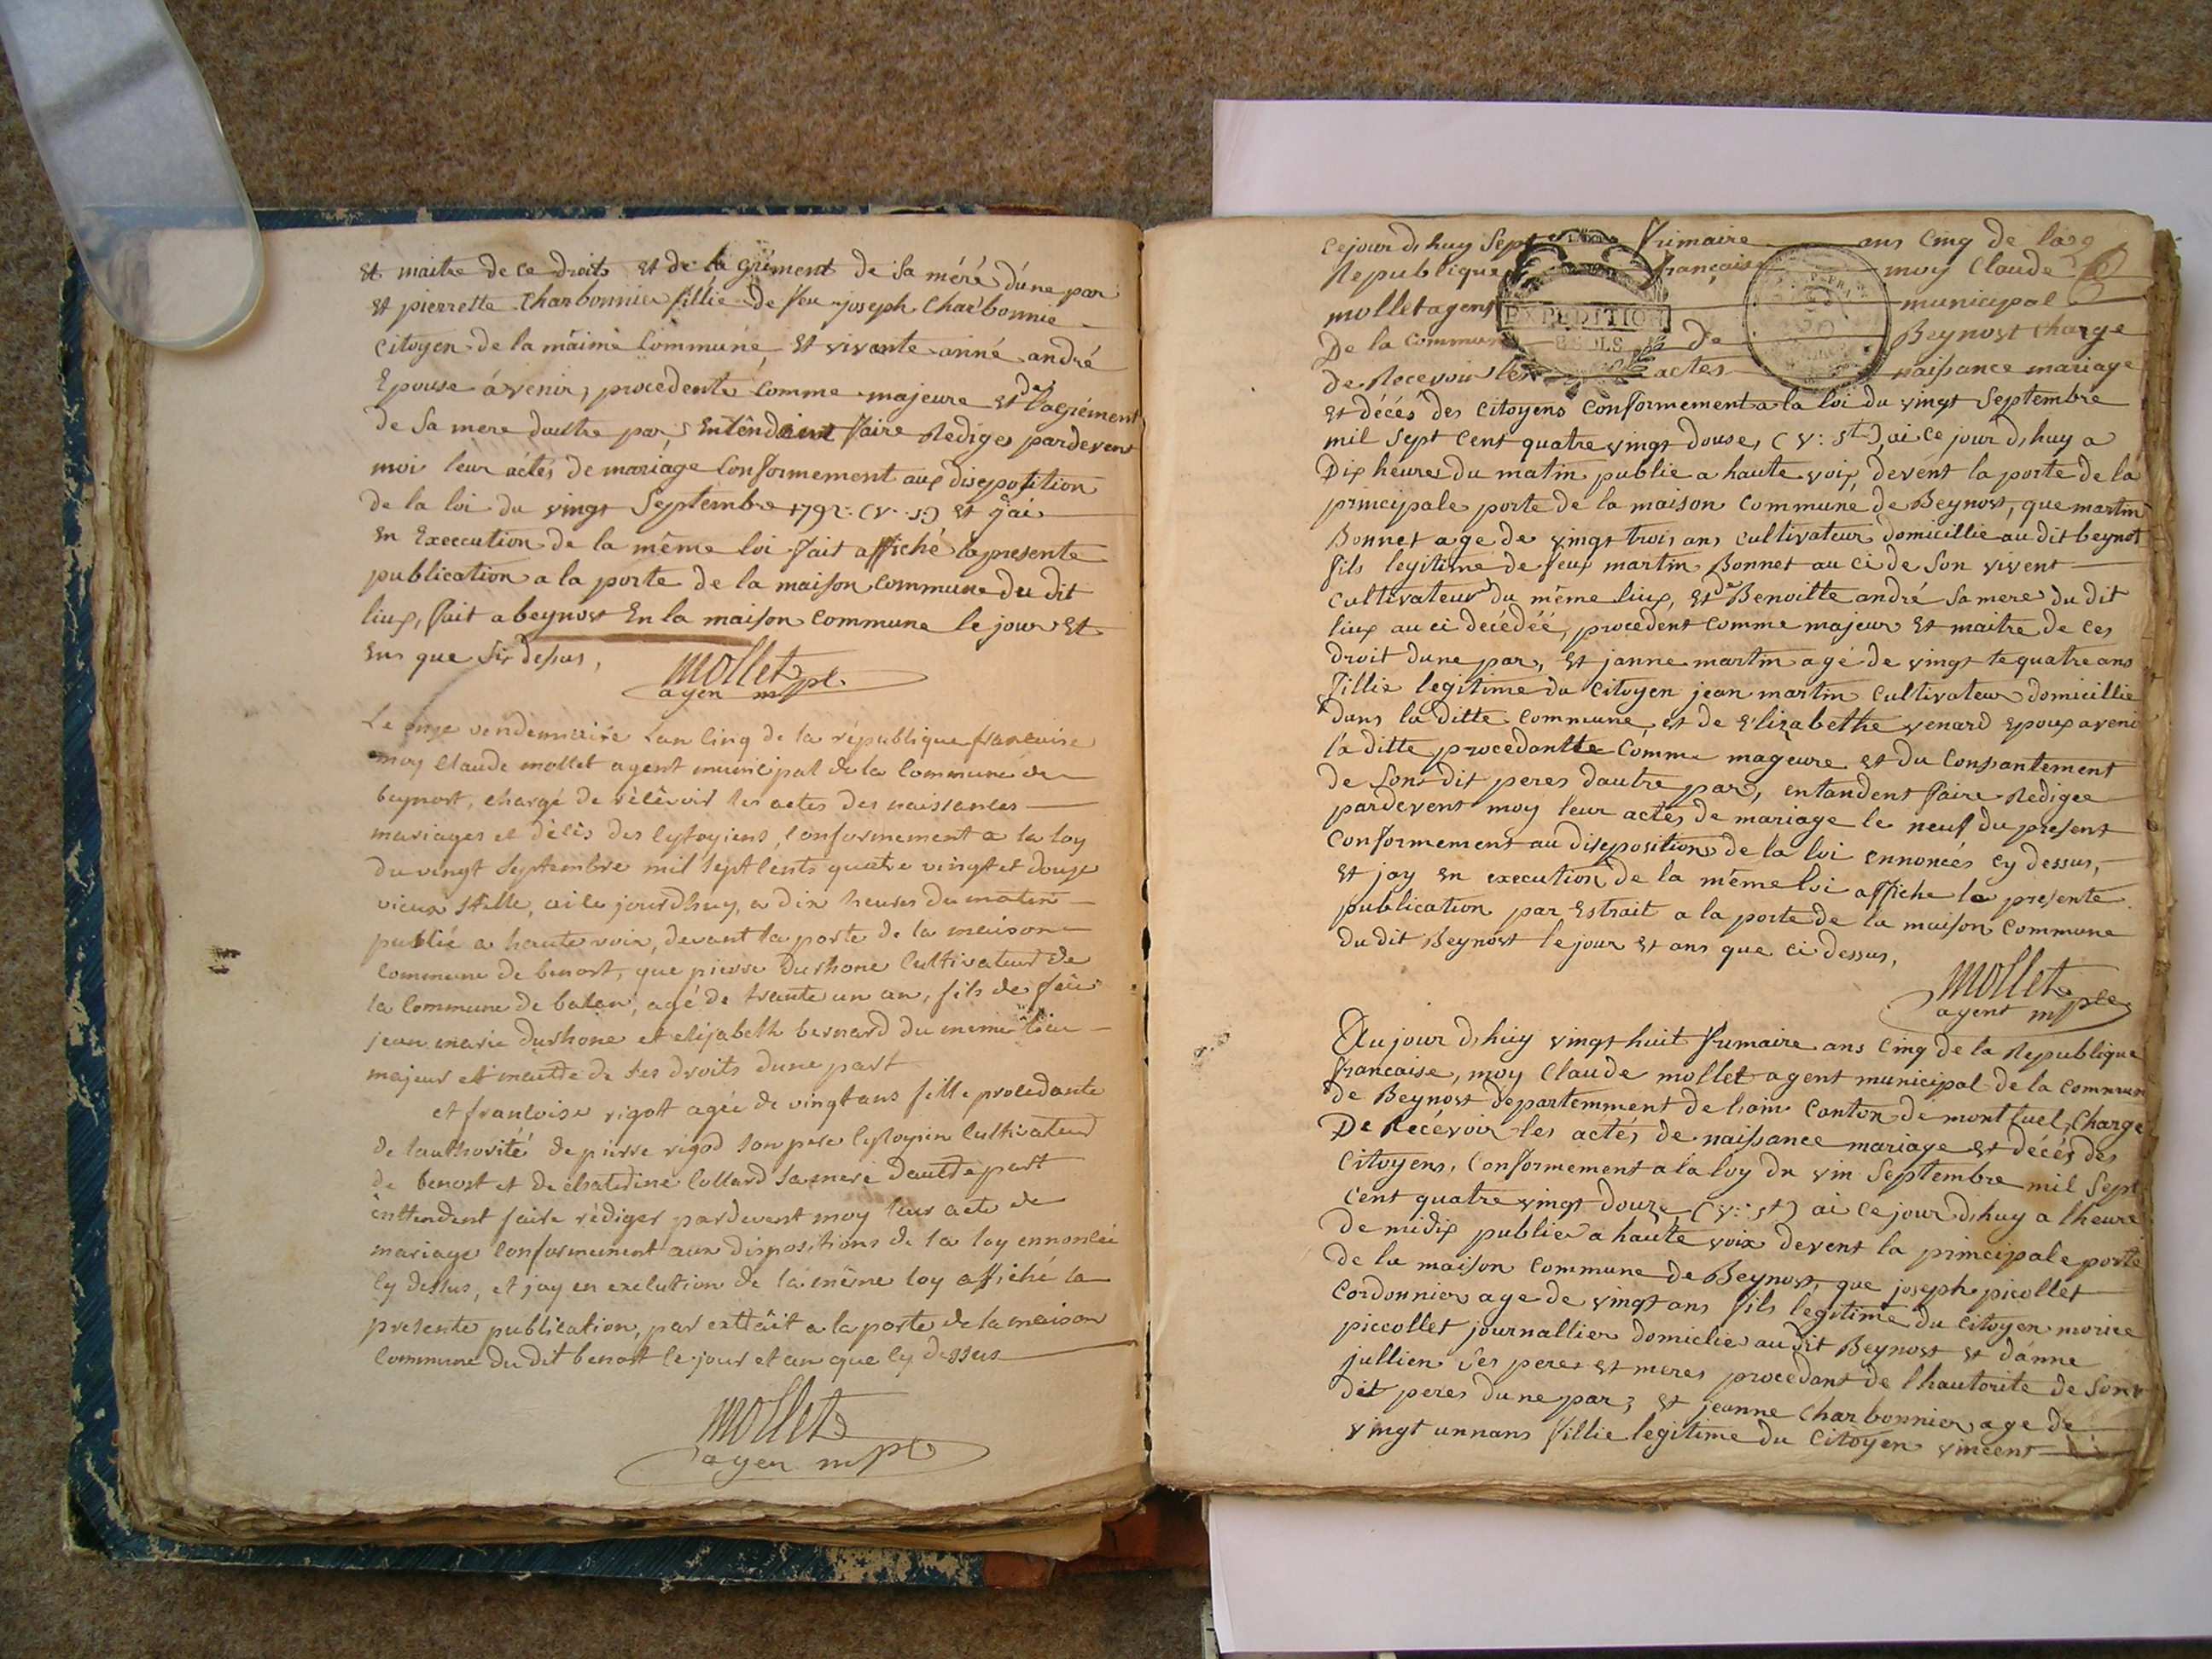 et maitre de ce droits et de la grément de sa méré dúne par
et pierrette Charbonnier fillie de feu joseph Charbonnie
citoyen de la maime Communé, et vivante anné andré
Epouse ávenir, procedente comme majeure et de lagrément
de sa mere daultre par, Entendaint faire Rediger pardevent
moi leur actés de mariage Conformement aux disposition
de la loi du vingt Septembre 1792. (v. s.) et j'ai
En Exeecution de la même loi fait affiché la presente
publication a la porte de la maison commune du dit
liux, fait a beynost En la maison commune le jour et
Ens que sis dessus,
mollet
agen mpl
Le onze vendemiaire Lan Cinq de la république francaise
moy Claude mollet agent municipal de la Commune de
beynost, chargé de récevoir les actes des naissances
mariages et décès des Cytoyiens, Conformement a la loy
du vingt septembre mil sept Cents quatre vingt et douze
vieux stille, ai ce jourdhuy, a dix heures du matin
publié a haute voix, devant la porte de la maison
Commune de benost, que pierre Durhone Cultivateur de
la Commune de balan, agé de trante un an, fils de feu
jean marie durhone et elisabeth bernard du meme lieu
majeur et maitre de ses droits dune part
et francoise rigott agée de vingt ans fille procedante
de lauthorité de pierre rigod son pere Cytoyien Cultivateur
de benost et de Chaterine Collard sa mere dautre part
enttendent faire rédiger pardevent moy leur acte de
mariage Conformement aux dispositions de la loy ennoncée
Cy dessus, et jay en execution de la même loy affiché la
presente publication, par exttrait a la porte de la maison
Commune du dit benost le jour et an que Cy dessus
mollet
agen mpl
Cejour dhuy Sept frimaire ans Cinq de la
Republique française moy Claude
mollet agent municipal
De la Commune de Beynost Charge
de Recevoir les actes naissance mariage
et décés des Citoyens Conformement a la loi du vingt Septembre
mil Sept Cent quatre vingt douse, (v: st) ai ce jour dhuy a
Dix heures du matin publie a haute voix, devént la porte de la
principale porte de la maison Communé de Beynost, que martin
Bonnet age de vingt trois ans cultivateur domicillie au dit beynot
fils legitime de feux martin Bonnet au ci de Son vivent
Cultivateur du même liux, et de Benoitte andré Sa mere du dit
liux au ci décédéé, procedent comme majeur et maitre de ces
droit dune par, et janne martin agé de vingt te quatre ans
fillie legitime du Citoyen jean martin Cultivateur domicillie
dans la ditte Communé et de Elizabethe venard Epoux a venir
la ditte procedantte Comme mageure et du Consantement
de Son dit peres dautre par, entandent faire Rediger
pardevent moy leur actés de mariage le neuf du present
Conformement au disepositions de la loi ennoncés cy dessus,
et jay en execution de la même loi affiche la presente
publication par Estrait a la porte de la maison Commune
du dit Beynost le jour et ans que ci dessus,
mollet
agent mple
EXPEDITION
Aujour dhuy vingt huit frimaire ans Cinq de la Republique
francaise, moy Claude mollet agent municipal de la Commun
de Beynost départemment de lain Canton de montluel, Charge
De Récévoir les actés de naissance mariage et décés des
Citoyens, Conformement a la loy du vin Septembre mil Sept
cent quatre vingt douze (v: st) ai ce jour dhuy a lheure
de midix publie a haute voix devent la principale porte
de la maison Commune de Beynost, que joseph picollet
Cordonnier age de vingt ans fils legitime du Citoyen morice
piccollet journallier domiclie au dit Beynost et dánne
jullien Ses peres et meres procedant de lhautorite de Sont
dit peres dune par, et jeanne Charbonnier age de
vingt unnans fillie legitime du Citoyen vincent